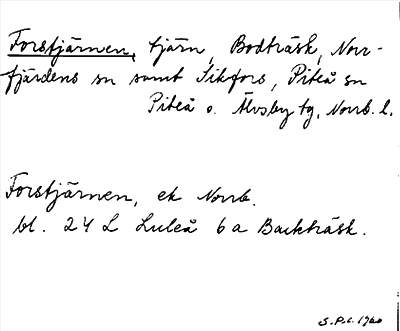 Forstjärnen, tjärn, Bodträsk, Norr-
fjärdens sn samt Sikfors, Piteå sn
Piteå o. Älvsby tg, Norrb. l.
Forstjärnen, ek Norrb.
bl. 24 L Luleå 6 a Backträsk.
S.P.C. 1960